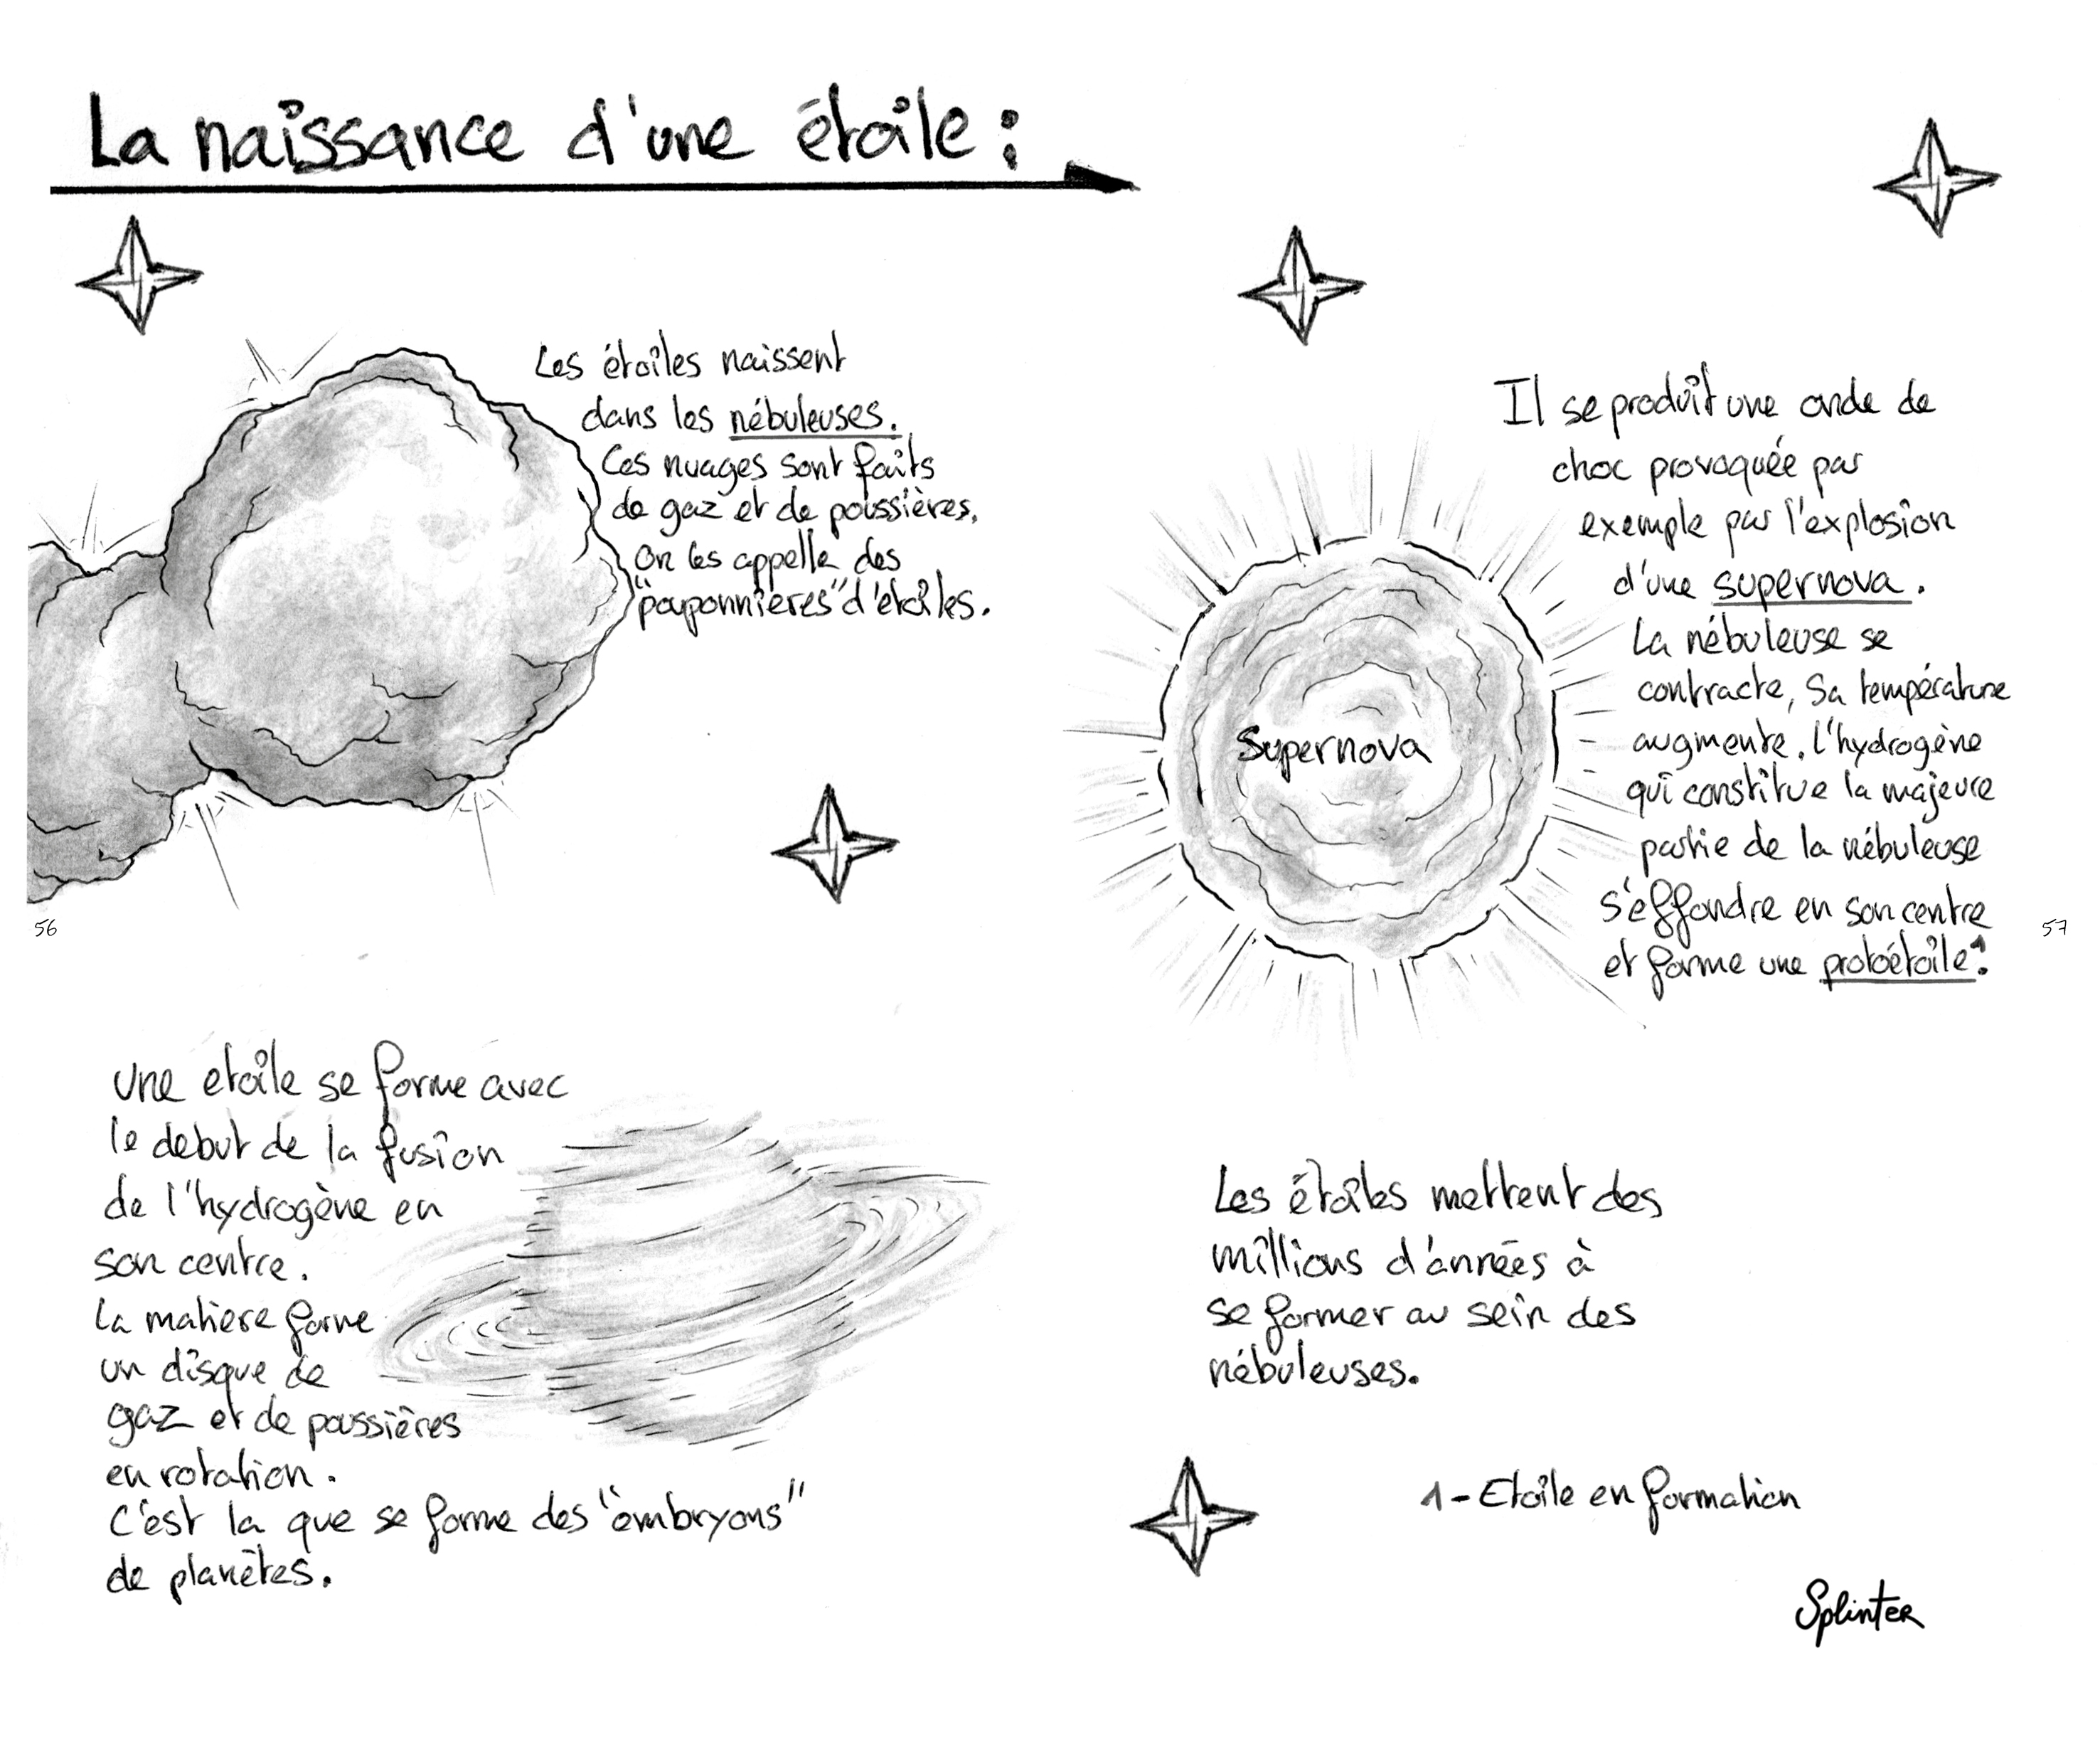 La naissance d'une étoile :
Les étoiles naissent
dans les nébuleuses.
Ces nuages sont faits
de gaz et de poussières.
On les appelle des
"pouponnieres" d'étoiles.
56
Il se produit une onde de
choc provoquée par
exemple par l'explosion
d'une supernova.
La nébuleuse se
contracte, sa température
augmente. l'hydrogène
qui constitue la majeure
partie de la nébuleuse
s'éffondre en son centre
et forme une protoétoile¹.
Supernova
57
Une etoile se forme avec
le debut de la fusion
de l'hydrogène en
son centre.
La matière forme
un disque de
gaz et de poussières
en rotation.
C'est la que se forme des "embryons"
de planètes.
Les étoiles mettent des
millions d'années à
se former au sein des
nébuleuses.
1 - Etoile en formation
Splinter